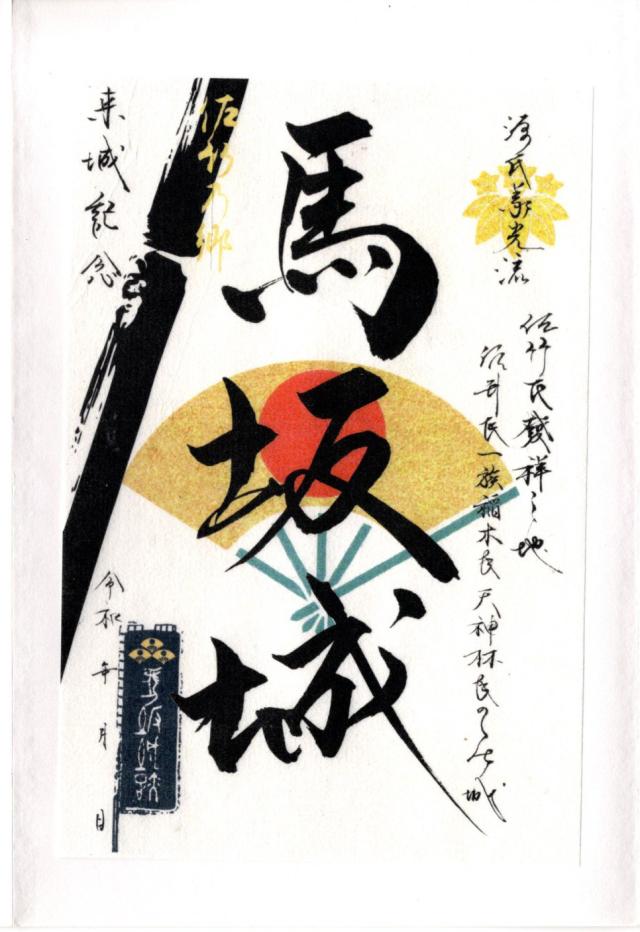 源氏義光流
佐竹氏発祥之地
佐竹氏一族稲木氏天神林氏の居城
馬坂城
佐竹乃郷
来城記念
令和 年 月 日